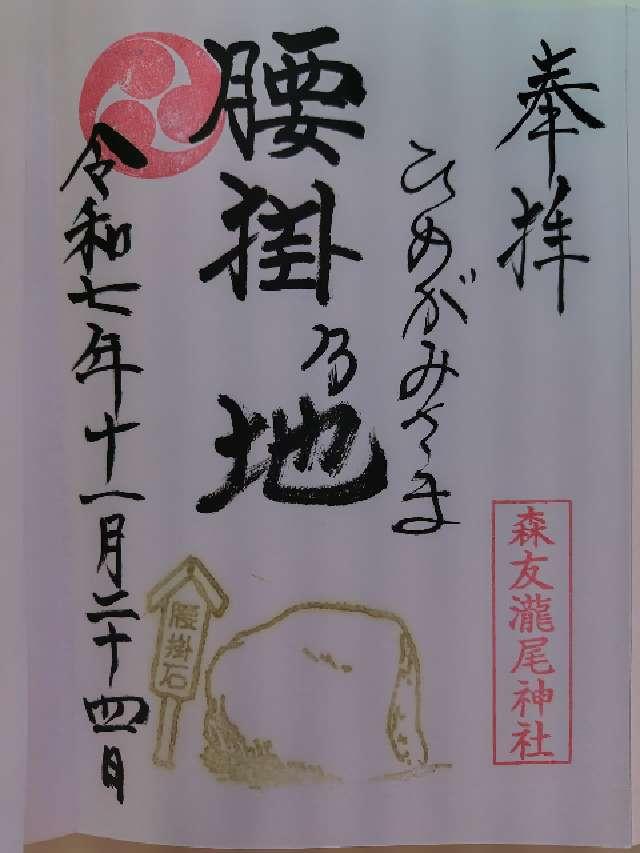 奉拝
ひめがみさま
腰掛乃地
令和七年十一月二十四日
森友瀧尾神社
腰掛石